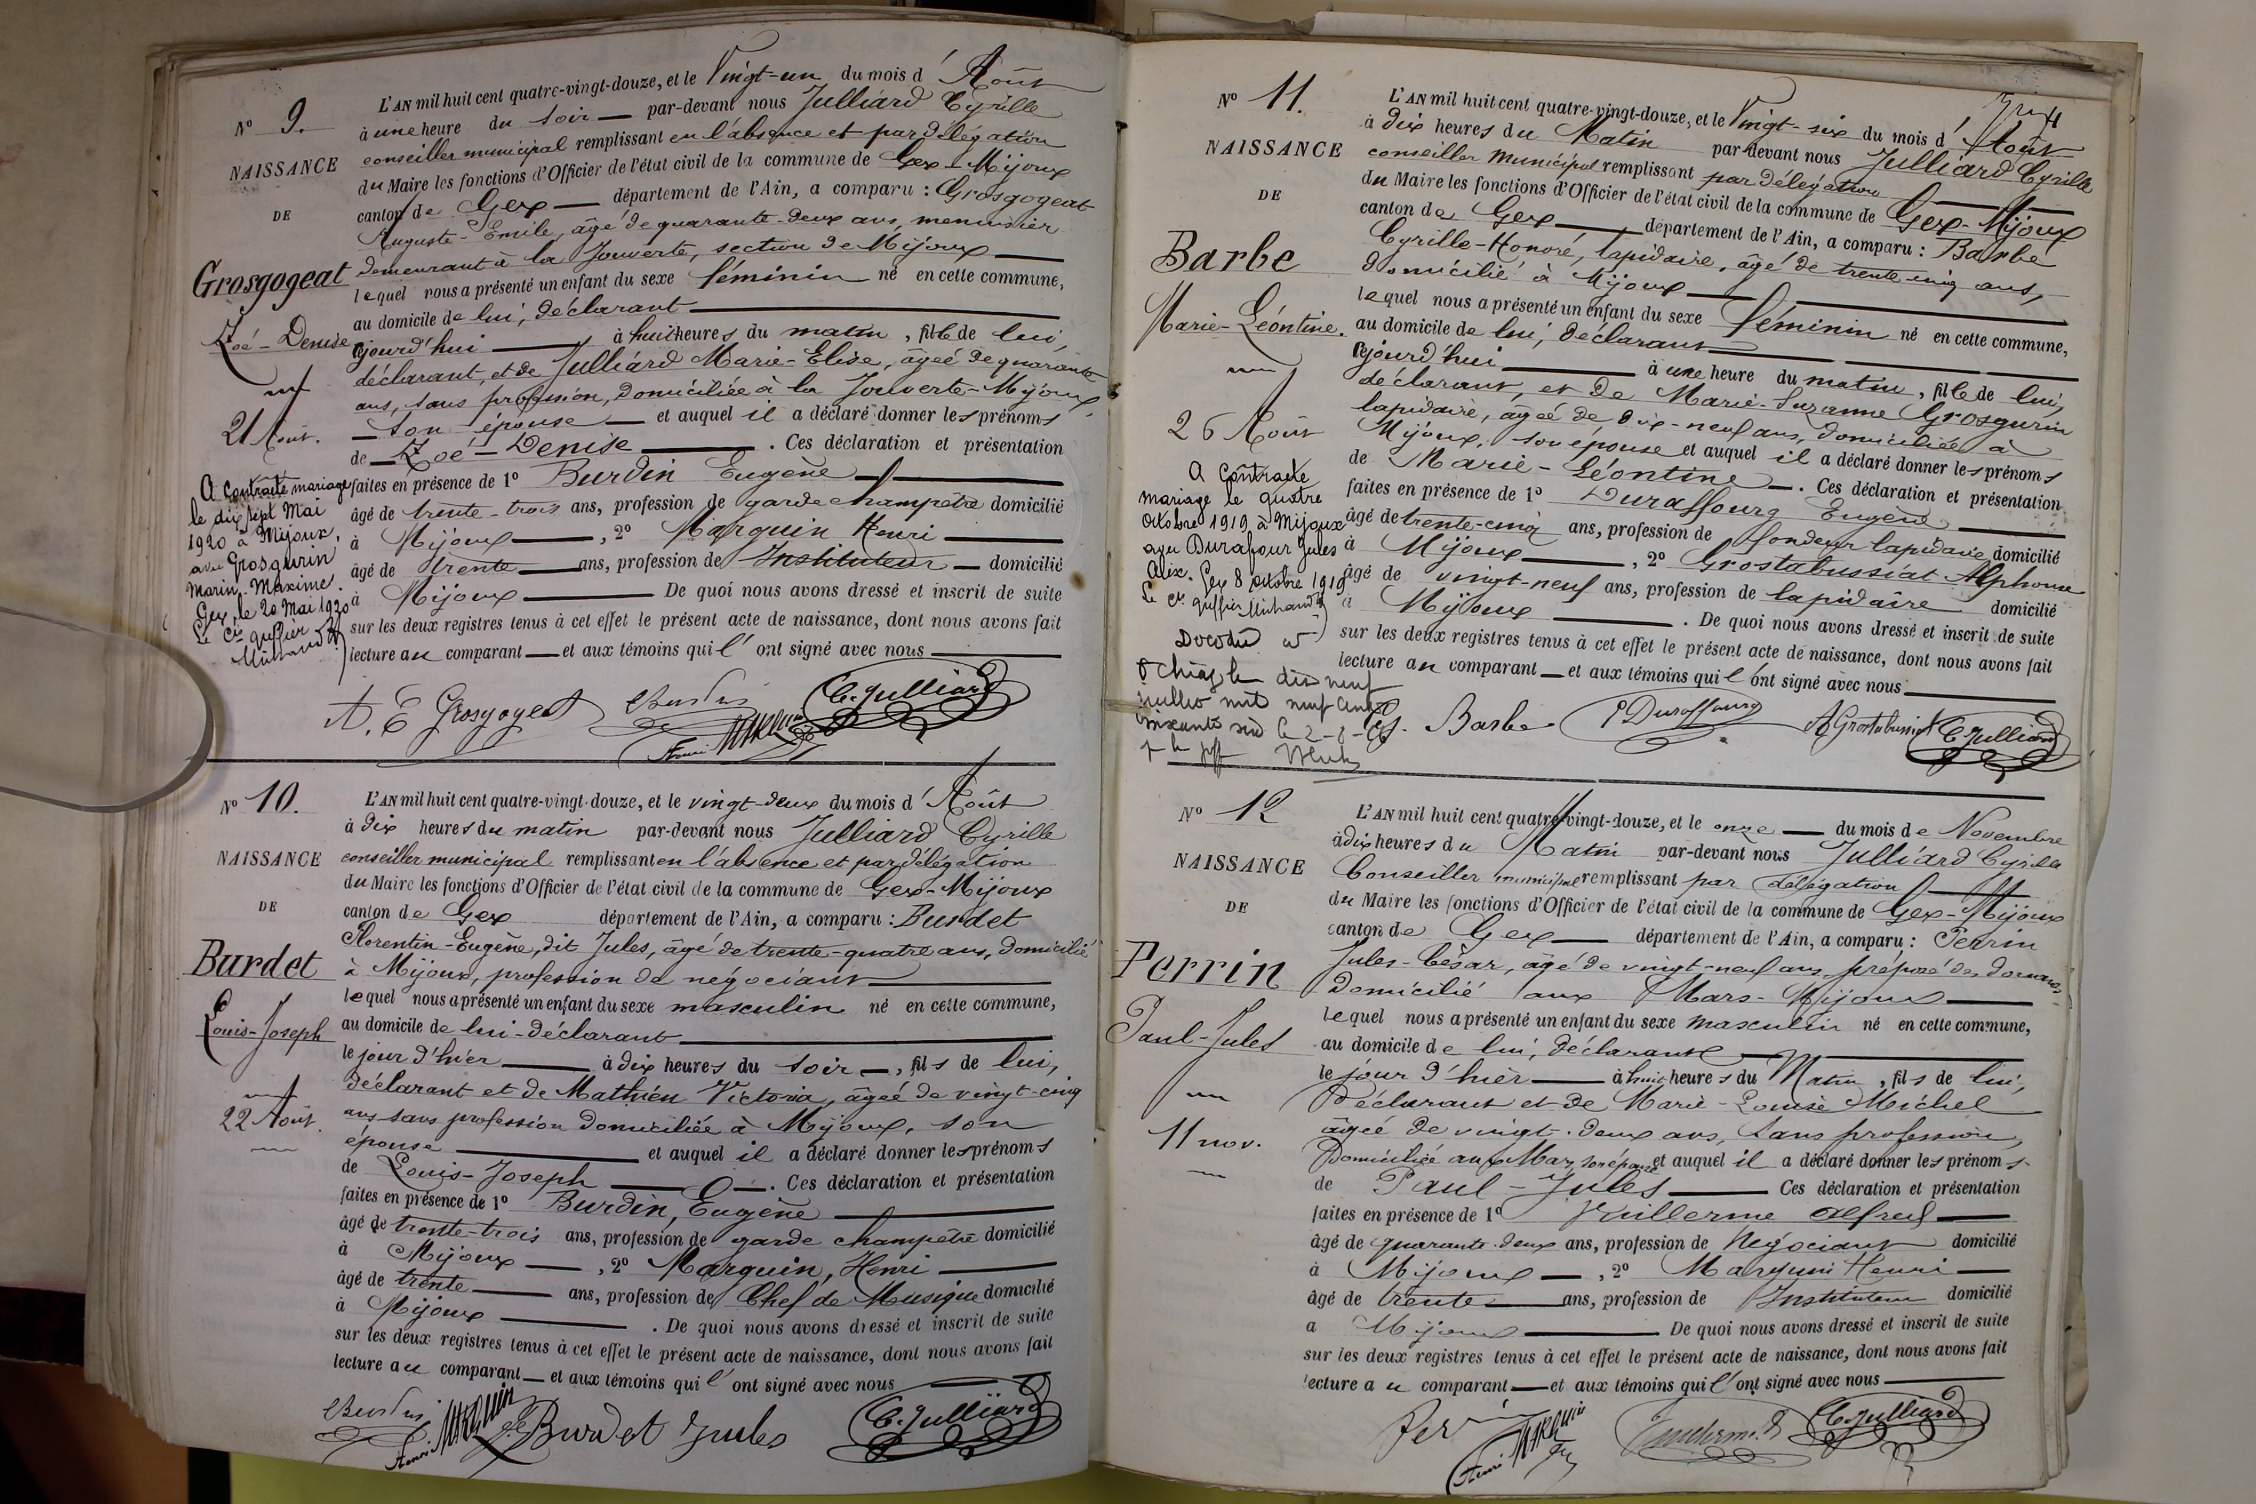 N° 9.
NAISSANCE
DE
Grosgogeat
Zoé-Denise
21 Août.
A contracté mariage
le dix sept Mai
1920 à Mijoux,
avec Grosgurin
Marin-Maxime.
Gex, le 20 Mai 1920
Le Cis greffier
L'AN mil huit cent quatre-vingt-douze, et le Vingt-un du mois d'Août
à une heure du soir par-devant nous Julliard Cyrille
conseiller municipal remplissant en l'absence et par délégation
du Maire les fonctions d'Officier de l'état civil de la commune de Gex-Mijoux
canton de Gex département de l'Ain, a comparu : Grosgogeat
Auguste-Emile, âgé de quarante-deux ans, menuisier
demeurant à la Jouverte, section de Mijoux
lequel nous a présenté un enfant du sexe féminin né en cette commune,
au domicile de lui, déclarant
ajourd'hui à huit heures du matin, fille de lui,
déclarant, et de Julliard Marie-Elise, âgée de quarante
ans, sans profession, domiciliée à la Jouverte-Mijoux,
son épouse et auquel il a déclaré donner les prénoms
de Zoé-Denise. Ces déclaration et présentation
faites en présence de 1° Burdin Eugène
âgé de trente-trois ans, profession de garde champêtre domicilié
à Mijoux, 2° Marquin Henri
âgé de trente ans, profession de Instituteur domicilié
à Mijoux De quoi nous avons dressé et inscrit de suite
sur les deux registres tenus à cet effet le présent acte de naissance, dont nous avons fait
lecture au comparant et aux témoins qui l'ont signé avec nous
A. E Grosgogeat EBurdin C. Julliard
Henri MARQUIN
N° 10.
NAISSANCE
DE
Burdet
Louis-Joseph
22 Août.
L'AN mil huit cent quatre-vingt-douze, et le vingt-deux du mois d'Août
à dix heures du matin par-devant nous Julliard Cyrille
conseiller municipal remplissant en l'absence et par délégation
du Maire les fonctions d'Officier de l'état civil de la commune de Gex-Mijoux
canton de Gex département de l'Ain, a comparu : Burdet
Florentin-Eugène, dit Jules, âgé de trente-quatre ans, domicilié
à Mijoux, profession de négociant
lequel nous a présenté un enfant du sexe masculin né en cette commune,
au domicile de lui-déclarant
le jour d'hier à dix heures du soir, fils de lui,
déclarant et de Mathieu Victoria, âgée de vingt-cinq
ans sans profession domiciliée à Mijoux, son
épouse et auquel il a déclaré donner les prénoms
de Louis-Joseph. Ces déclaration et présentation
faites en présence de 1° Burdin, Eugène
âgé de trente-trois ans, profession de garde champêtre domicilié
à Mijoux, 2° Marquin, Henri
âgé de trente ans, profession de Chef de Musique domicilié
à Mijoux. De quoi nous avons dressé et inscrit de suite
sur les deux registres tenus à cet effet le présent acte de naissance, dont nous avons fait
lecture au comparant et aux témoins qui l'ont signé avec nous
EBurdin Henri MARQUIN Burdet Jules C. Julliard
N° 11.
NAISSANCE
DE
Barbe
Marie-Léontine.
26 Août
A contracté
mariage le quatre
octobre 1919 à Mijoux
avec Durafour Jules
Alix. Gex 8 octobre 1919
Le Cis greffier
L'AN mil huit cent quatre-vingt-douze, et le Vingt-six du mois d'Août
à dix heures du Matin par-devant nous Julliard Cyrille
conseiller municipal remplissant par délégation
du Maire les fonctions d'Officier de l'état civil de la commune de Gex-Mijoux
canton de Gex département de l'Ain, a comparu : Barbe
Cyrille-Honoré, lapidaire, âgé de trente-cinq ans,
domicilié à Mijoux
lequel nous a présenté un enfant du sexe féminin né en cette commune,
au domicile de lui, déclarant
ajourd'hui à une heure du matin, fille de lui,
déclarant, et de Marie-Suzanne Grosgurin
lapidaire, âgée de dix-neuf ans, domiciliée à
Mijoux, son épouse et auquel il a déclaré donner les prénoms
de Marie-Léontine. Ces déclaration et présentation
faites en présence de 1° Duraffourg Eugène
âgé de trente-cinq ans, profession de fondeur lapidaire domicilié
à Mijoux, 2° Grostabussiat Alphonse
âgé de vingt-neuf ans, profession de lapidaire domicilié
à Mijoux. De quoi nous avons dressé et inscrit de suite
sur les deux registres tenus à cet effet le présent acte de naissance, dont nous avons fait
lecture au comparant et aux témoins qui l'ont signé avec nous
Barbe E Duraffourg A Grostabussiat C. Julliard
N° 12
NAISSANCE
DE
Perrin
Paul-Jules
11 nov.
L'AN mil huit cent quatre-vingt-douze, et le onze du mois de Novembre
à dix heures du Matin par-devant nous Julliard Cyrille
Conseiller municipal remplissant par délégation
du Maire les fonctions d'Officier de l'état civil de la commune de Gex-Mijoux
canton de Gex département de l'Ain, a comparu : Perrin
Jules-César, âgé de vingt-neuf ans, préposé des douanes,
Domicilié aux Mars-Mijoux
lequel nous a présenté un enfant du sexe masculin né en cette commune,
au domicile de lui, déclarant
le jour d'hier à huit heures du Matin, fils de lui,
Déclarant et de Marie-Louise Michel
âgée de vingt-deux ans, sans profession,
Domiciliée aux Mars, son épouse et auquel il a déclaré donner les prénoms
de Paul-Jules Ces déclaration et présentation
faites en présence de 1° Vuillerme Alfred
âgé de quarante-deux ans, profession de Négociant domicilié
à Mijoux, 2° Marquin Henri
âgé de trente ans, profession de Instituteur domicilié
à Mijoux De quoi nous avons dressé et inscrit de suite
sur les deux registres tenus à cet effet le présent acte de naissance, dont nous avons fait
lecture au comparant et aux témoins qui l'ont signé avec nous
Perrin Henri MARQUIN Vuillerme A C. Julliard